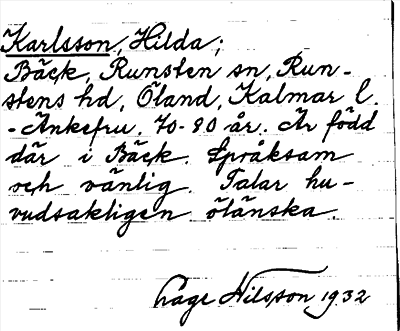 Karlsson, Hilda;
Bäck, Runsten sn, Run-
stens hd, Öland, Kalmar l.
- Änkefru. 70-80 år. Är född
där i Bäck. Språksam
och vänlig. Talar hu-
vudsakligen öländska.
Åage Nilsson 1932